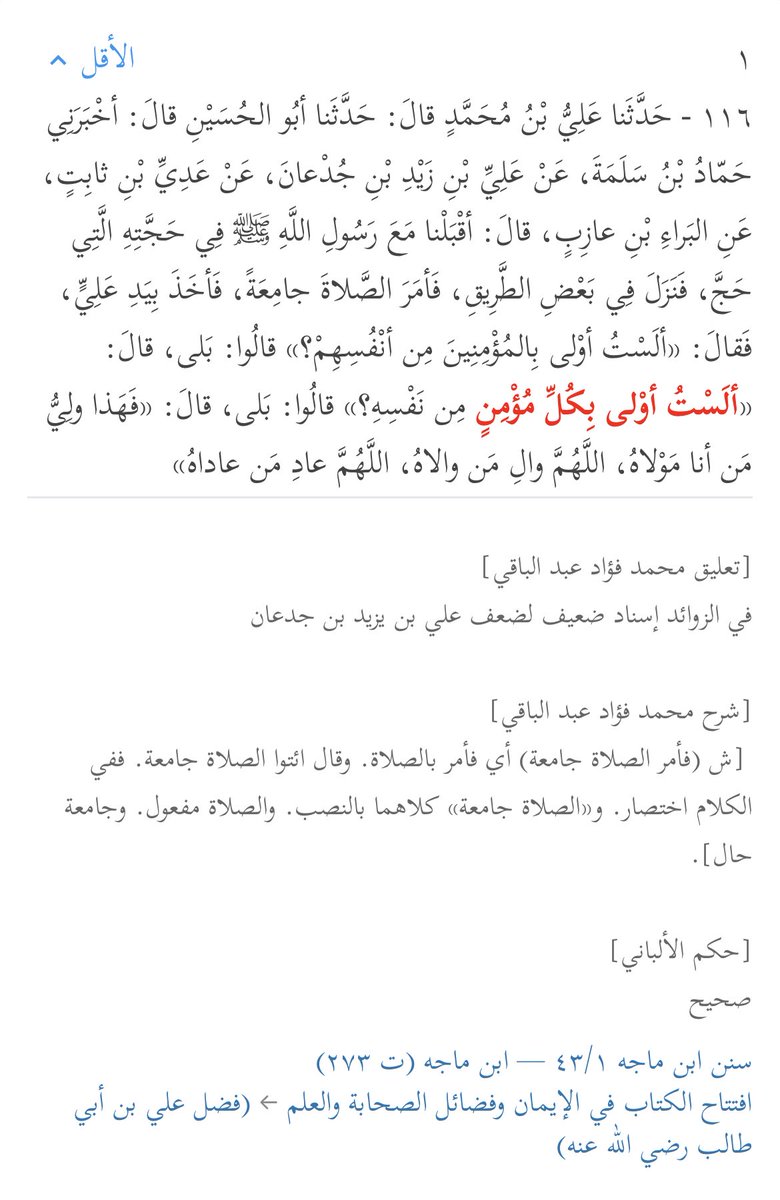 ١
الأقل
١١٦ - حَدَّثَنا عَلِيُّ بْنُ مُحَمَّدٍ قالَ: حَدَّثَنا أبُو الحُسَيْنِ قالَ: أخْبَرَنِي
حَمّادُ بْنُ سَلَمَةَ، عَنْ عَلِيِّ بْنِ زَيْدِ بْنِ جُدْعانَ، عَنْ عَدِيِّ بْنِ ثابِتٍ،
عَنِ البَراءِ بْنِ عازِبٍ، قالَ: أقْبَلْنا مَعَ رَسُولِ اللَّهِ ﷺ فِي حَجَّتِهِ الَّتِي
حَجَّ، فَنَزَلَ فِي بَعْضِ الطَّرِيقِ، فَأمَرَ الصَّلاةَ جامِعَةً، فَأخَذَ بِيَدِ عَلِيٍّ،
فَقالَ: «ألَسْتُ أوْلى بِالمُؤْمِنِينَ مِن أنْفُسِهِمْ؟» قالُوا: بَلى، قالَ:
«ألَسْتُ أوْلى بِكُلِّ مُؤْمِنٍ مِن نَفْسِهِ؟» قالُوا: بَلى، قالَ: «فَهَذا ولِيُّ
مَن أنا مَوْلاهُ، اللَّهُمَّ والِ مَن والاهُ، اللَّهُمَّ عادِ مَن عاداهُ»
[تعليق محمد فؤاد عبد الباقي]
في الزوائد إسناد ضعيف لضعف علي بن يزيد بن جدعان
[شرح محمد فؤاد عبد الباقي]
[ش (فأمر الصلاة جامعة) أي فأمر بالصلاة. وقال ائتوا الصلاة جامعة. ففي
الكلام اختصار. و«الصلاة جامعة» كلاهما بالنصب. والصلاة مفعول. وجامعة
حال].
[حكم الألباني]
صحيح
سنن ابن ماجه ٤٣/١ — ابن ماجه (ت ٢٧٣)
افتتاح الكتاب في الإيمان وفضائل الصحابة والعلم ← (فضل علي بن أبي
طالب رضي الله عنه)